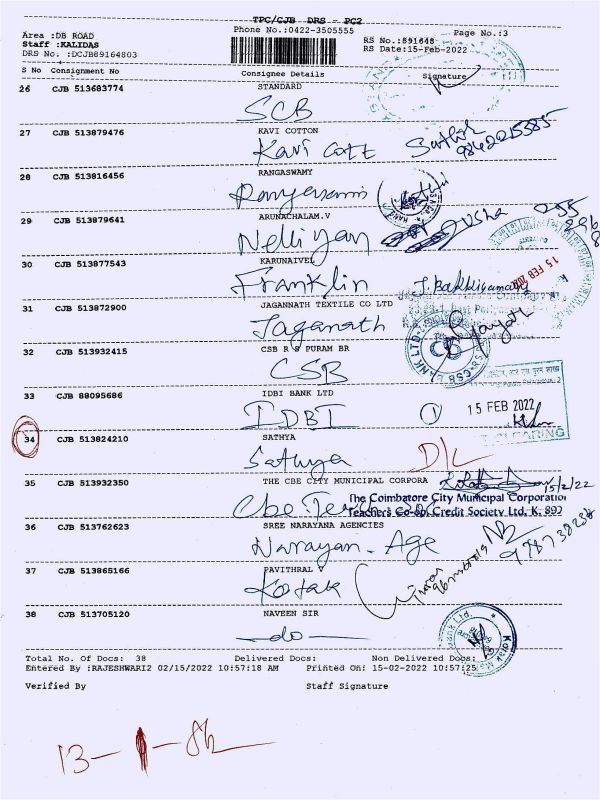 TPC/CJB DRS - PC2
Phone No.:0422-3505555
Page No.:3
Area :DB ROAD
RS No.:891648
Staff :KALIDAS
RS Date:15-Feb-2022
DRS No. :DCJB89164803
S No Consignment No Consignee Details Signature
26 CJB 513683774 STANDARD
SCB
27 CJB 513879476 KAVI COTTON
Kavi Cott
28 CJB 513816456 RANGASWAMY
29 CJB 513879641 ARUNACHALAM.V
Nelliyan USHA
30 CJB 513877543 KARUNAIVEL
Franklin
15 FEB 202
31 CJB 513872900 JAGANNATH TEXTILE CO LTD
Jaganath
32 CJB 513932415 CSB R S PURAM BR
CSB
33 CJB 88095686 IDBI BANK LTD
IDBI 1 15 FEB 2022
34 CJB 513824210 SATHYA
Sathya D/L
CLEARING
35 CJB 513932350 THE CBE CITY MUNICIPAL CORPORA
15/2/22
The Coimbatore City Municipal Corporation
Teachers Co-op. Credit Society Ltd. K. 892
36 CJB 513762623 SREE NARAYANA AGENCIES
Narayan. Age
37 CJB 513865166 PAVITHRAL V
Kotak
38 CJB 513705120 NAVEEN SIR
-do-
Total No. Of Docs: 38 Delivered Docs: Non Delivered Docs:
Entered By :RAJESHWARI2 02/15/2022 10:57:18 AM Printed On: 15-02-2022 10:57:25
Verified By Staff Signature